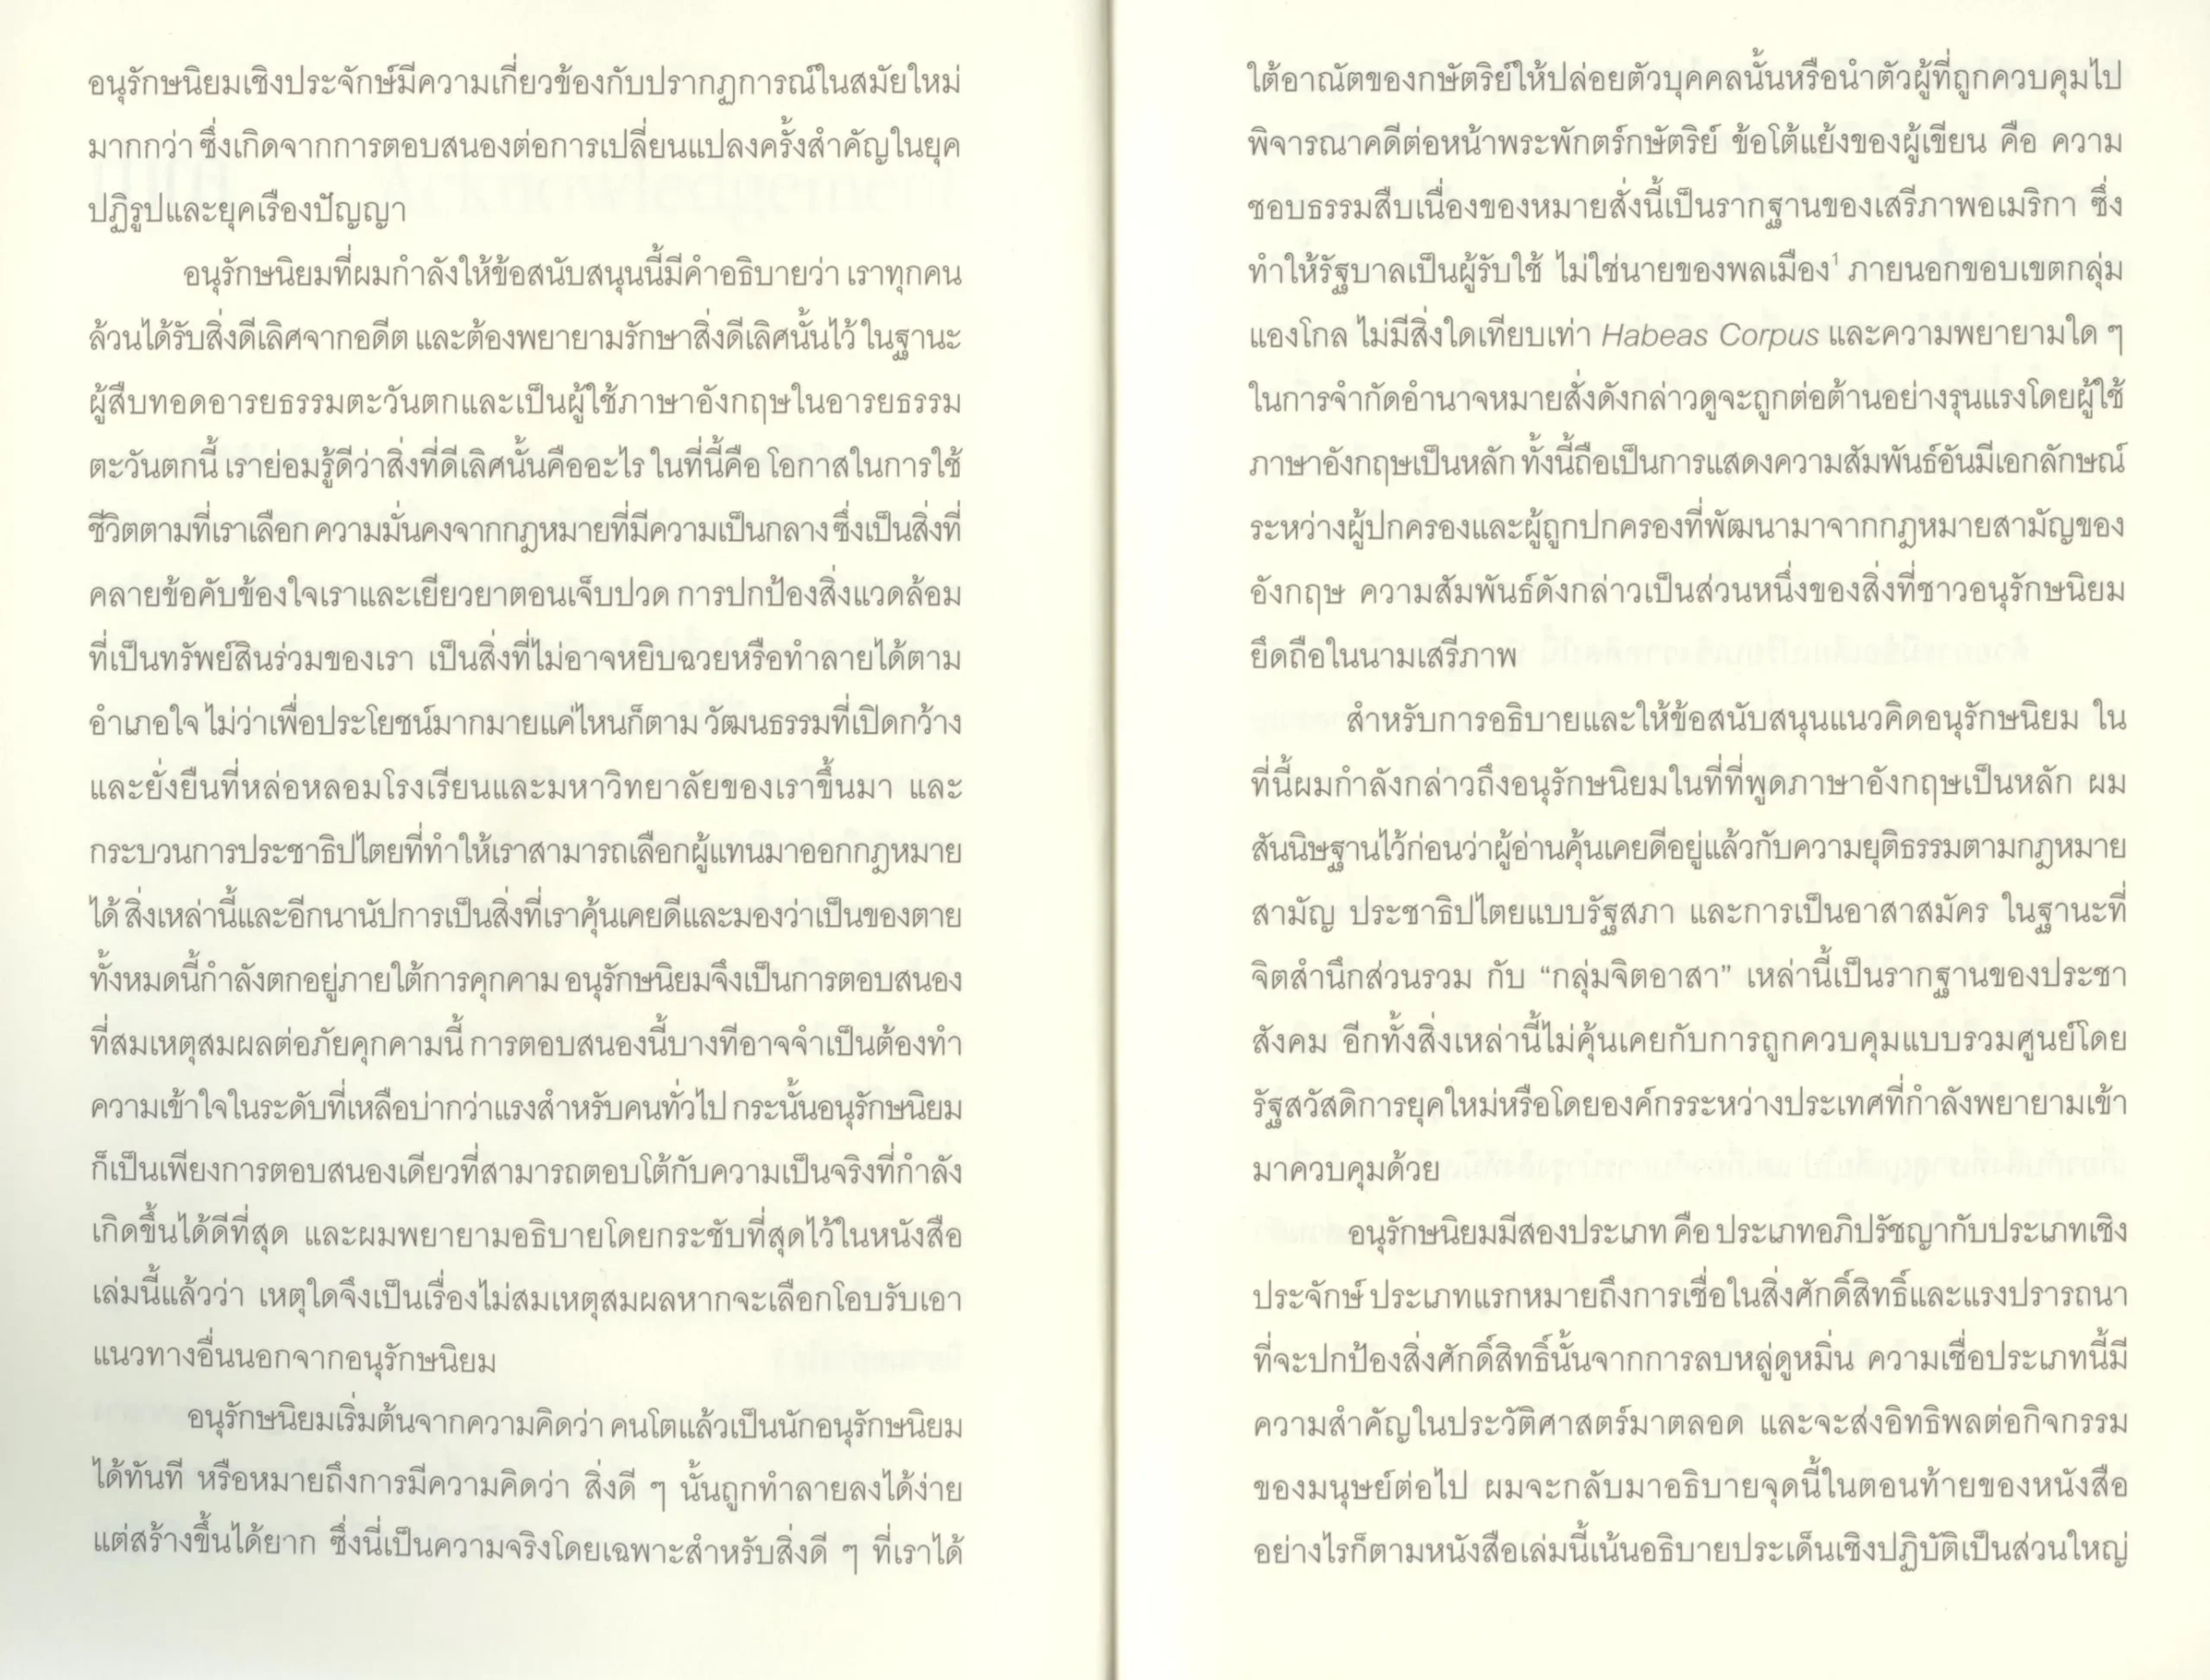 อนุรักษนิยมเชิงประจักษ์มีความเกี่ยวข้องกับปรากฏการณ์ในสมัยใหม่
มากกว่า ซึ่งเกิดจากการตอบสนองต่อการเปลี่ยนแปลงครั้งสำคัญในยุค
ปฏิรูปและยุคเรืองปัญญา
อนุรักษนิยมที่ผมกำลังให้ข้อสนับสนุนนี้มีคำอธิบายว่า เราทุกคน
ล้วนได้รับสิ่งดีเลิศจากอดีต และต้องพยายามรักษาสิ่งดีเลิศนั้นไว้ ในฐานะ
ผู้สืบทอดอารยธรรมตะวันตกและเป็นผู้ใช้ภาษาอังกฤษในอารยธรรม
ตะวันตกนี้ เราย่อมรู้ดีว่าสิ่งที่ดีเลิศนั้นคืออะไร ในที่นี้คือ โอกาสในการใช้
ชีวิตตามที่เราเลือก ความมั่นคงจากกฎหมายที่มีความเป็นกลาง ซึ่งเป็นสิ่งที่
คลายข้อคับข้องใจเราและเยียวยาตอนเจ็บปวด การปกป้องสิ่งแวดล้อม
ที่เป็นทรัพย์สินร่วมของเรา เป็นสิ่งที่ไม่อาจหยิบฉวยหรือทำลายได้ตาม
อำเภอใจ ไม่ว่าเพื่อประโยชน์มากมายแค่ไหนก็ตาม วัฒนธรรมที่เปิดกว้าง
และยั่งยืนที่หล่อหลอมโรงเรียนและมหาวิทยาลัยของเราขึ้นมา และ
กระบวนการประชาธิปไตยที่ทำให้เราสามารถเลือกผู้แทนมาออกกฎหมาย
ได้ สิ่งเหล่านี้และอีกนานัปการเป็นสิ่งที่เราคุ้นเคยดีและมองว่าเป็นของตาย
ทั้งหมดนี้กำลังตกอยู่ภายใต้การคุกคาม อนุรักษนิยมจึงเป็นการตอบสนอง
ที่สมเหตุสมผลต่อภัยคุกคามนี้ การตอบสนองนี้บางทีอาจจำเป็นต้องทำ
ความเข้าใจในระดับที่เหลือบ่ากว่าแรงสำหรับคนทั่วไป กระนั้นอนุรักษนิยม
ก็เป็นเพียงการตอบสนองเดียวที่สามารถตอบโต้กับความเป็นจริงที่กำลัง
เกิดขึ้นได้ดีที่สุด และผมพยายามอธิบายโดยกระชับที่สุดไว้ในหนังสือ
เล่มนี้แล้วว่า เหตุใดจึงเป็นเรื่องไม่สมเหตุสมผลหากจะเลือกโอบรับเอา
แนวทางอื่นนอกจากอนุรักษนิยม
อนุรักษนิยมเริ่มต้นจากความคิดว่า คนโตแล้วเป็นนักอนุรักษนิยม
ได้ทันที หรือหมายถึงการมีความคิดว่า สิ่งดี ๆ นั้นถูกทำลายลงได้ง่าย
แต่สร้างขึ้นได้ยาก ซึ่งนี่เป็นความจริงโดยเฉพาะสำหรับสิ่งดี ๆ ที่เราได้
ใต้อาณัตของกษัตริย์ให้ปล่อยตัวบุคคลนั้นหรือนำตัวผู้ที่ถูกควบคุมไป
พิจารณาคดีต่อหน้าพระพักตร์กษัตริย์ ข้อโต้แย้งของผู้เขียน คือ ความ
ชอบธรรมสืบเนื่องของหมายสั่งนี้เป็นรากฐานของเสรีภาพอเมริกา ซึ่ง
ทำให้รัฐบาลเป็นผู้รับใช้ ไม่ใช่นายของพลเมือง¹ ภายนอกขอบเขตกลุ่ม
แองโกล ไม่มีสิ่งใดเทียบเท่า Habeas Corpus และความพยายามใด ๆ
ในการจำกัดอำนาจหมายสั่งดังกล่าวดูจะถูกต่อต้านอย่างรุนแรงโดยผู้ใช้
ภาษาอังกฤษเป็นหลัก ทั้งนี้ถือเป็นการแสดงความสัมพันธ์อันมีเอกลักษณ์
ระหว่างผู้ปกครองและผู้ถูกปกครองที่พัฒนามาจากกฎหมายสามัญของ
อังกฤษ ความสัมพันธ์ดังกล่าวเป็นส่วนหนึ่งของสิ่งที่ชาวอนุรักษนิยม
ยึดถือในนามเสรีภาพ
สำหรับการอธิบายและให้ข้อสนับสนุนแนวคิดอนุรักษนิยม ใน
ที่นี้ผมกำลังกล่าวถึงอนุรักษนิยมในที่ที่พูดภาษาอังกฤษเป็นหลัก ผม
สันนิษฐานไว้ก่อนว่าผู้อ่านคุ้นเคยดีอยู่แล้วกับความยุติธรรมตามกฎหมาย
สามัญ ประชาธิปไตยแบบรัฐสภา และการเป็นอาสาสมัคร ในฐานะที่
จิตสำนึกส่วนรวม กับ “กลุ่มจิตอาสา” เหล่านี้เป็นรากฐานของประชา
สังคม อีกทั้งสิ่งเหล่านี้ไม่คุ้นเคยกับการถูกควบคุมแบบรวมศูนย์โดย
รัฐสวัสดิการยุคใหม่หรือโดยองค์กรระหว่างประเทศที่กำลังพยายามเข้า
มาควบคุมด้วย
อนุรักษนิยมมีสองประเภท คือ ประเภทอภิปรัชญากับประเภทเชิง
ประจักษ์ ประเภทแรกหมายถึงการเชื่อในสิ่งศักดิ์สิทธิ์และแรงปรารถนา
ที่จะปกป้องสิ่งศักดิ์สิทธิ์นั้นจากการลบหลู่ดูหมิ่น ความเชื่อประเภทนี้มี
ความสำคัญในประวัติศาสตร์มาตลอด และจะส่งอิทธิพลต่อกิจกรรม
ของมนุษย์ต่อไป ผมจะกลับมาอธิบายจุดนี้ในตอนท้ายของหนังสือ
อย่างไรก็ตามหนังสือเล่มนี้เน้นอธิบายประเด็นเชิงปฏิบัติเป็นส่วนใหญ่